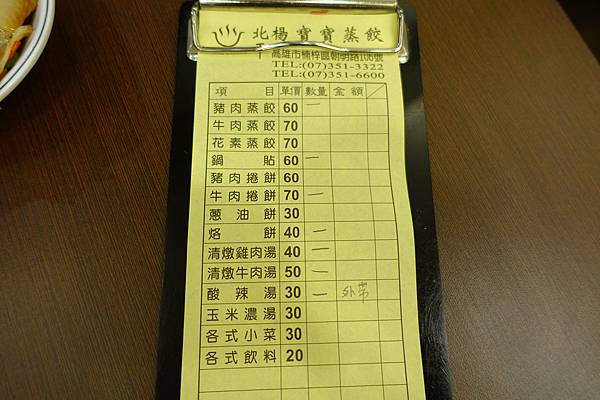 北楊寶寶蒸餃
高雄市楠梓區朝明路106號
TEL:(07)351-3322
TEL:(07)351-6600
項目 單價 數量 金額
豬肉蒸餃 60 一
牛肉蒸餃 70
花素蒸餃 70
鍋貼 60 一
豬肉捲餅 60
牛肉捲餅 70 一
蔥油餅 30
烙餅 40 一
清燉雞肉湯 40 一
清燉牛肉湯 50 一
酸辣湯 30 一 外帶
玉米濃湯 30
各式小菜 30
各式飲料 20